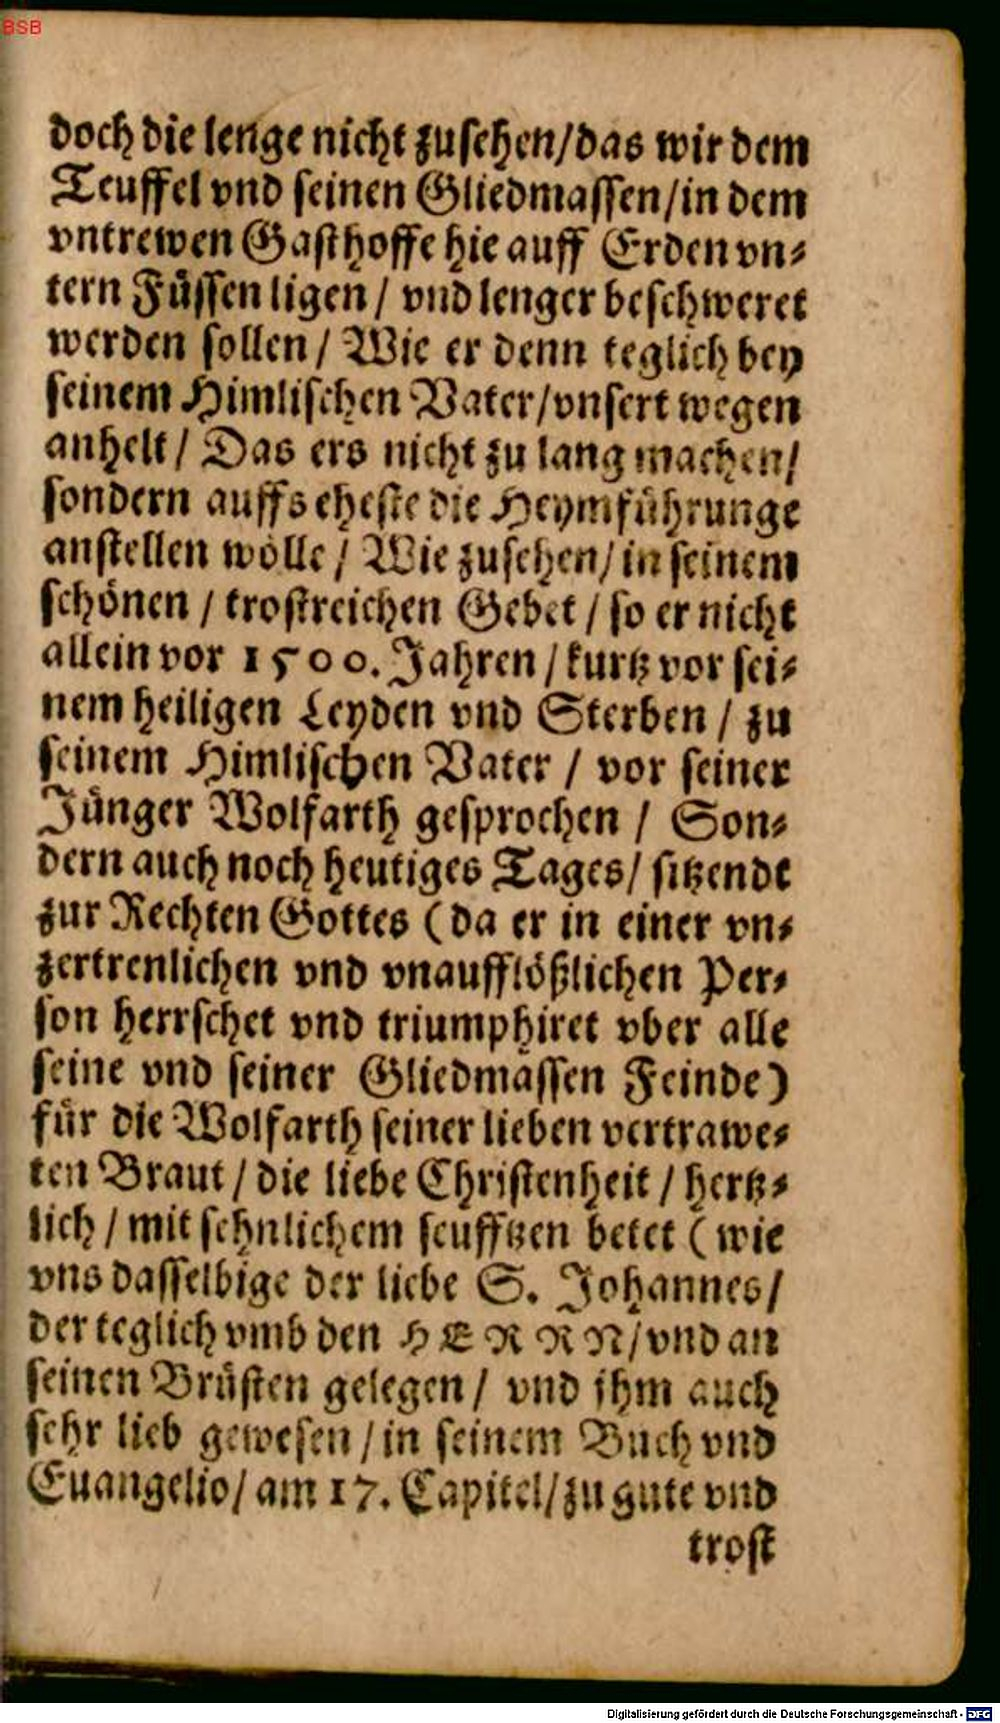 BSB
doch die lenge nicht zusehen/das wir dem
Teuffel vnd seinen Gliedmassen/in dem
vntrewen Gasthoffe hie auff Erden vn-
tern Füssen ligen / vnd lenger beschweret
werden sollen / Wie er denn teglich bey
seinem Himlischen Vater/vnsert wegen
anhelt / Das ers nicht zu lang machen/
sondern auffs eheste die Heymführunge
anstellen wölle / Wie zusehen/ in seinem
schönen / trostreichen Gebet / so er nicht
allein vor 1500. Jahren / kurtz vor sei-
nem heiligen Leyden vnd Sterben / zu
seinem Himlischen Vater / vor seiner
Jünger Wolfarth gesprochen / Son-
dern auch noch heutiges Tages/ sitzende
zur Rechten Gottes (da er in einer vn-
zertrenlichen vnd vnaufflößlichen Per-
son herrschet vnd triumphiret vber alle
seine vnd seiner Gliedmassen Feinde)
für die Wolfarth seiner lieben vertrawe-
ten Braut / die liebe Christenheit / hertz-
lich / mit sehnlichem seufftzen betet ( wie
vns dasselbige der liebe S. Johannes/
der teglich vmb den HERRN/vnd an
seinen Brüsten gelegen/ vnd ihm auch
sehr lieb gewesen / in seinem Buch vnd
Euangelio/ am 17. Capitel/zu gute vnd
trost
Digitalisierung gefördert durch die Deutsche Forschungsgemeinschaft - DFG